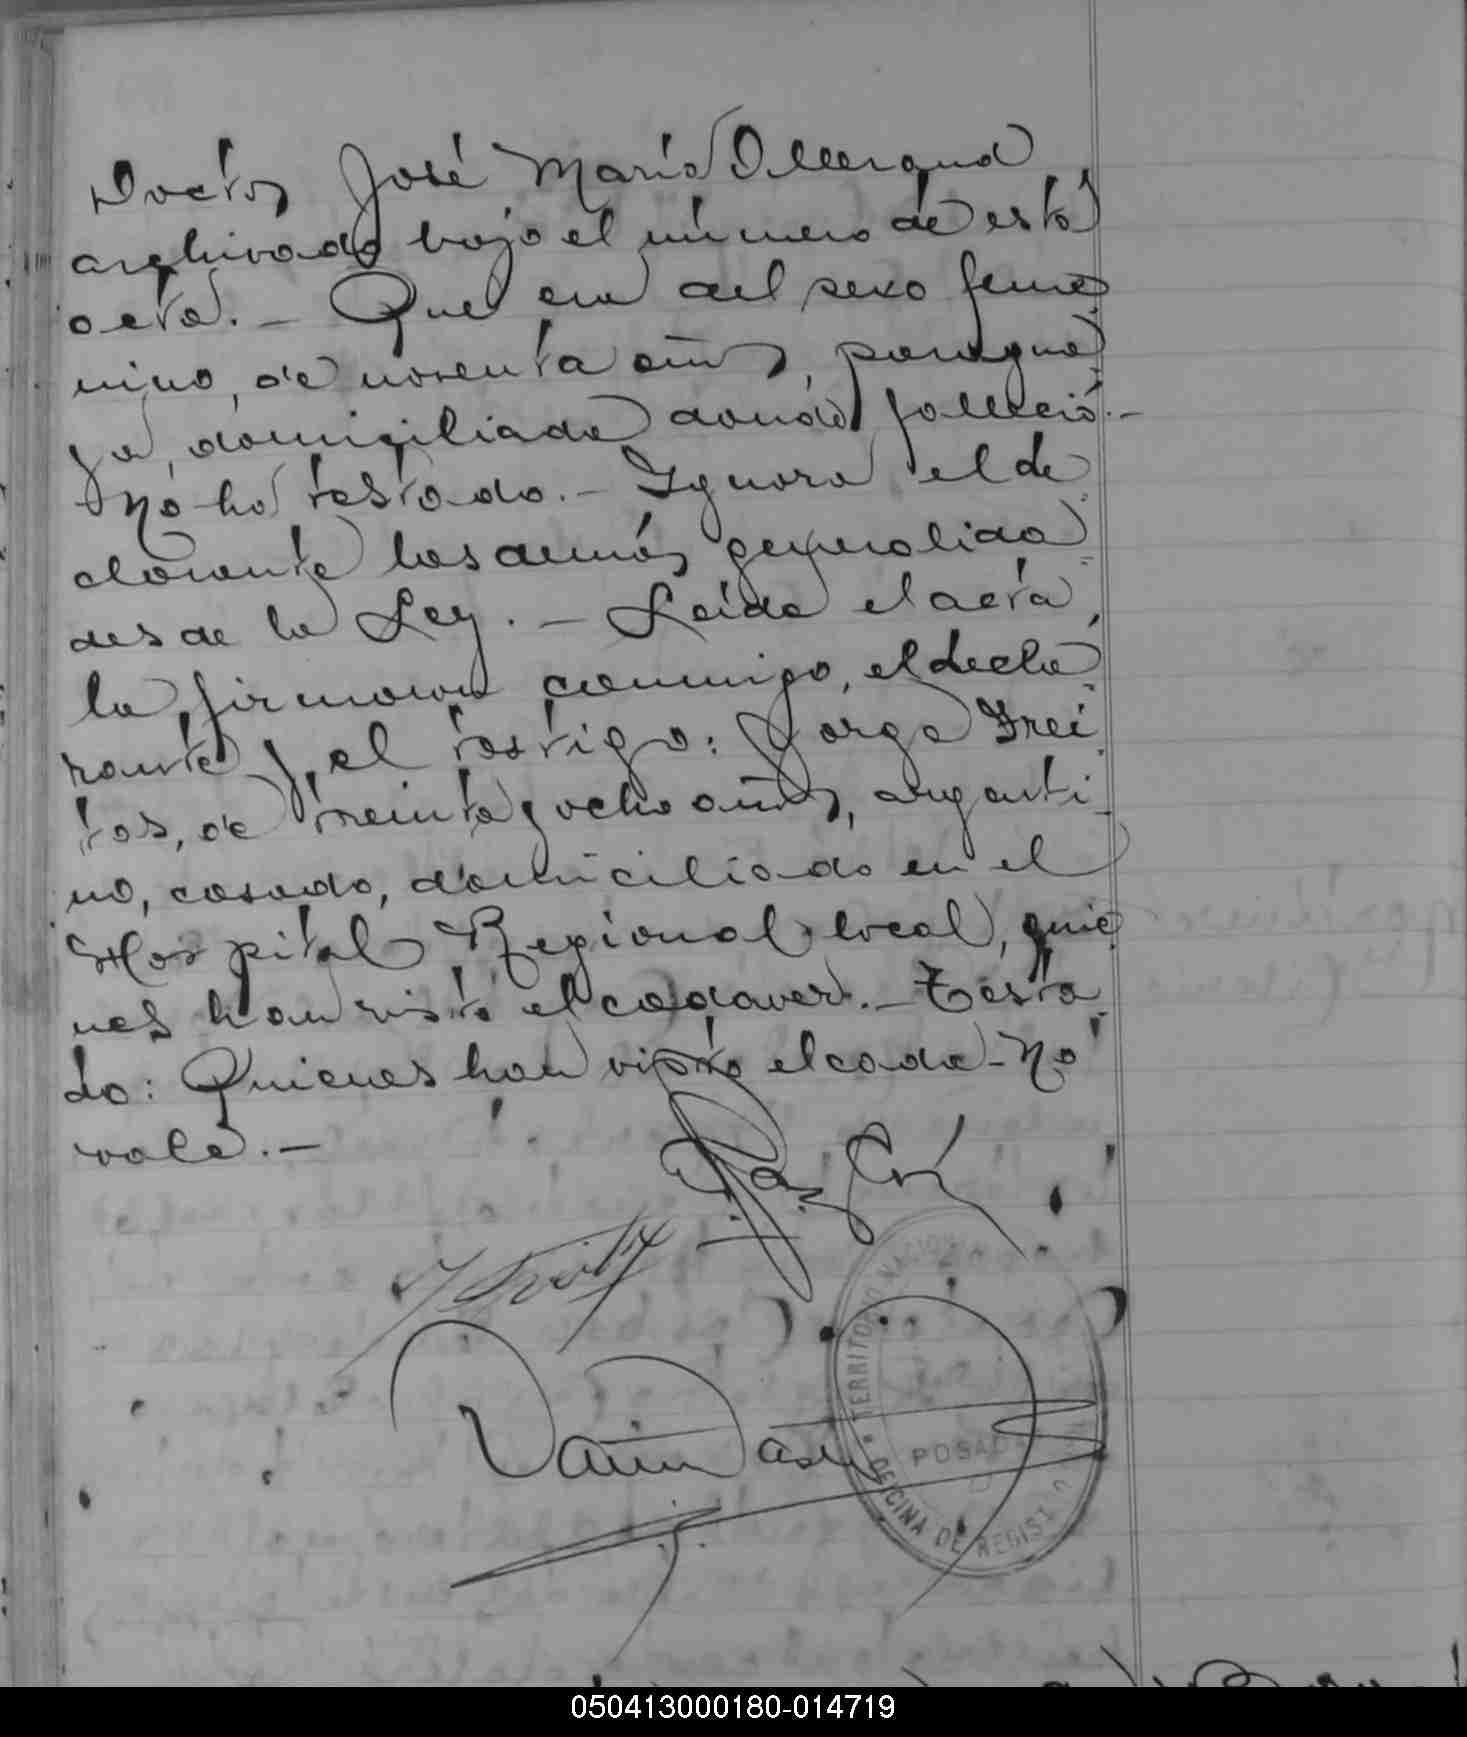 Doctor José María Ollerqud
archivado bajo el número de esta
acta.- Que era del sexo feme
nino, de noventa años, paragua
ya, domiciliada donde falleció.-
No ha testado.- Ignora el de
clarante las demás generalida
des de la Ley.- Leída el acta,
la firmaron conmigo, el decla
rante y el testigo: Jorge Frei
tas, de treinta y ocho años, argenti-
no, casado, domiciliado en el
Hospital Regional local, quie
nes han visto el cadáver.- Testa
do: Quienes han visto el cada-No
vale.-
TERRITORIO NACIONAL
POSADAS
OFICINA DE REGISTRO
050413000180-014719